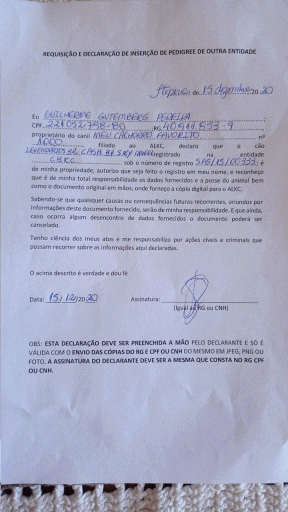 REQUISIÇÃO E DECLARAÇÃO DE INSERÇÃO DE PEDIGREE DE OUTRA ENTIDADE
de 15 dezembro 20 20
Eu GUILHERME GUTEMBERG PEREIRA
CPF RG
proprietário do canil MEU CACHORRO FAVORITO nº
filiado ao ALKC, declaro que o cão
registrado na entidade
sob o número de registro e
de minha propriedade, autorizo que seja feito o registro em meu nome, e reconheço
que é de minha total responsabilidade os dados fornecidos e a posse do animal bem
como o documento original em mãos, onde forneço a cópia digital para o ALKC.
Sabendo-se que quaisquer causas ou consequências futuras recorrentes, oriundos por
informações deste documento fornecido, serão de minha responsabilidade. E que ainda,
caso ocorra algum desencontro de dados fornecidos o documento poderá ser
cancelado.
Tenho ciência dos meus atos e me responsabilizo por ações cíveis e criminais que
possam recorrer sobre as informações aqui declaradas.
O acima descrito é verdade e dou fé
Data: 15/12/2020 Assinatura:
(Igual ao RG ou CNH)
OBS: ESTA DECLARAÇÃO DEVE SER PREENCHIDA A MÃO PELO DECLARANTE E SÓ É
VÁLIDA COM O ENVIO DAS CÓPIAS DO RG E CPF OU CNH DO MESMO EM JPEG, PNG OU
FOTO. A ASSINATURA DO DECLARANTE DEVE SER A MESMA QUE CONSTA NO RG CPF
OU CNH.